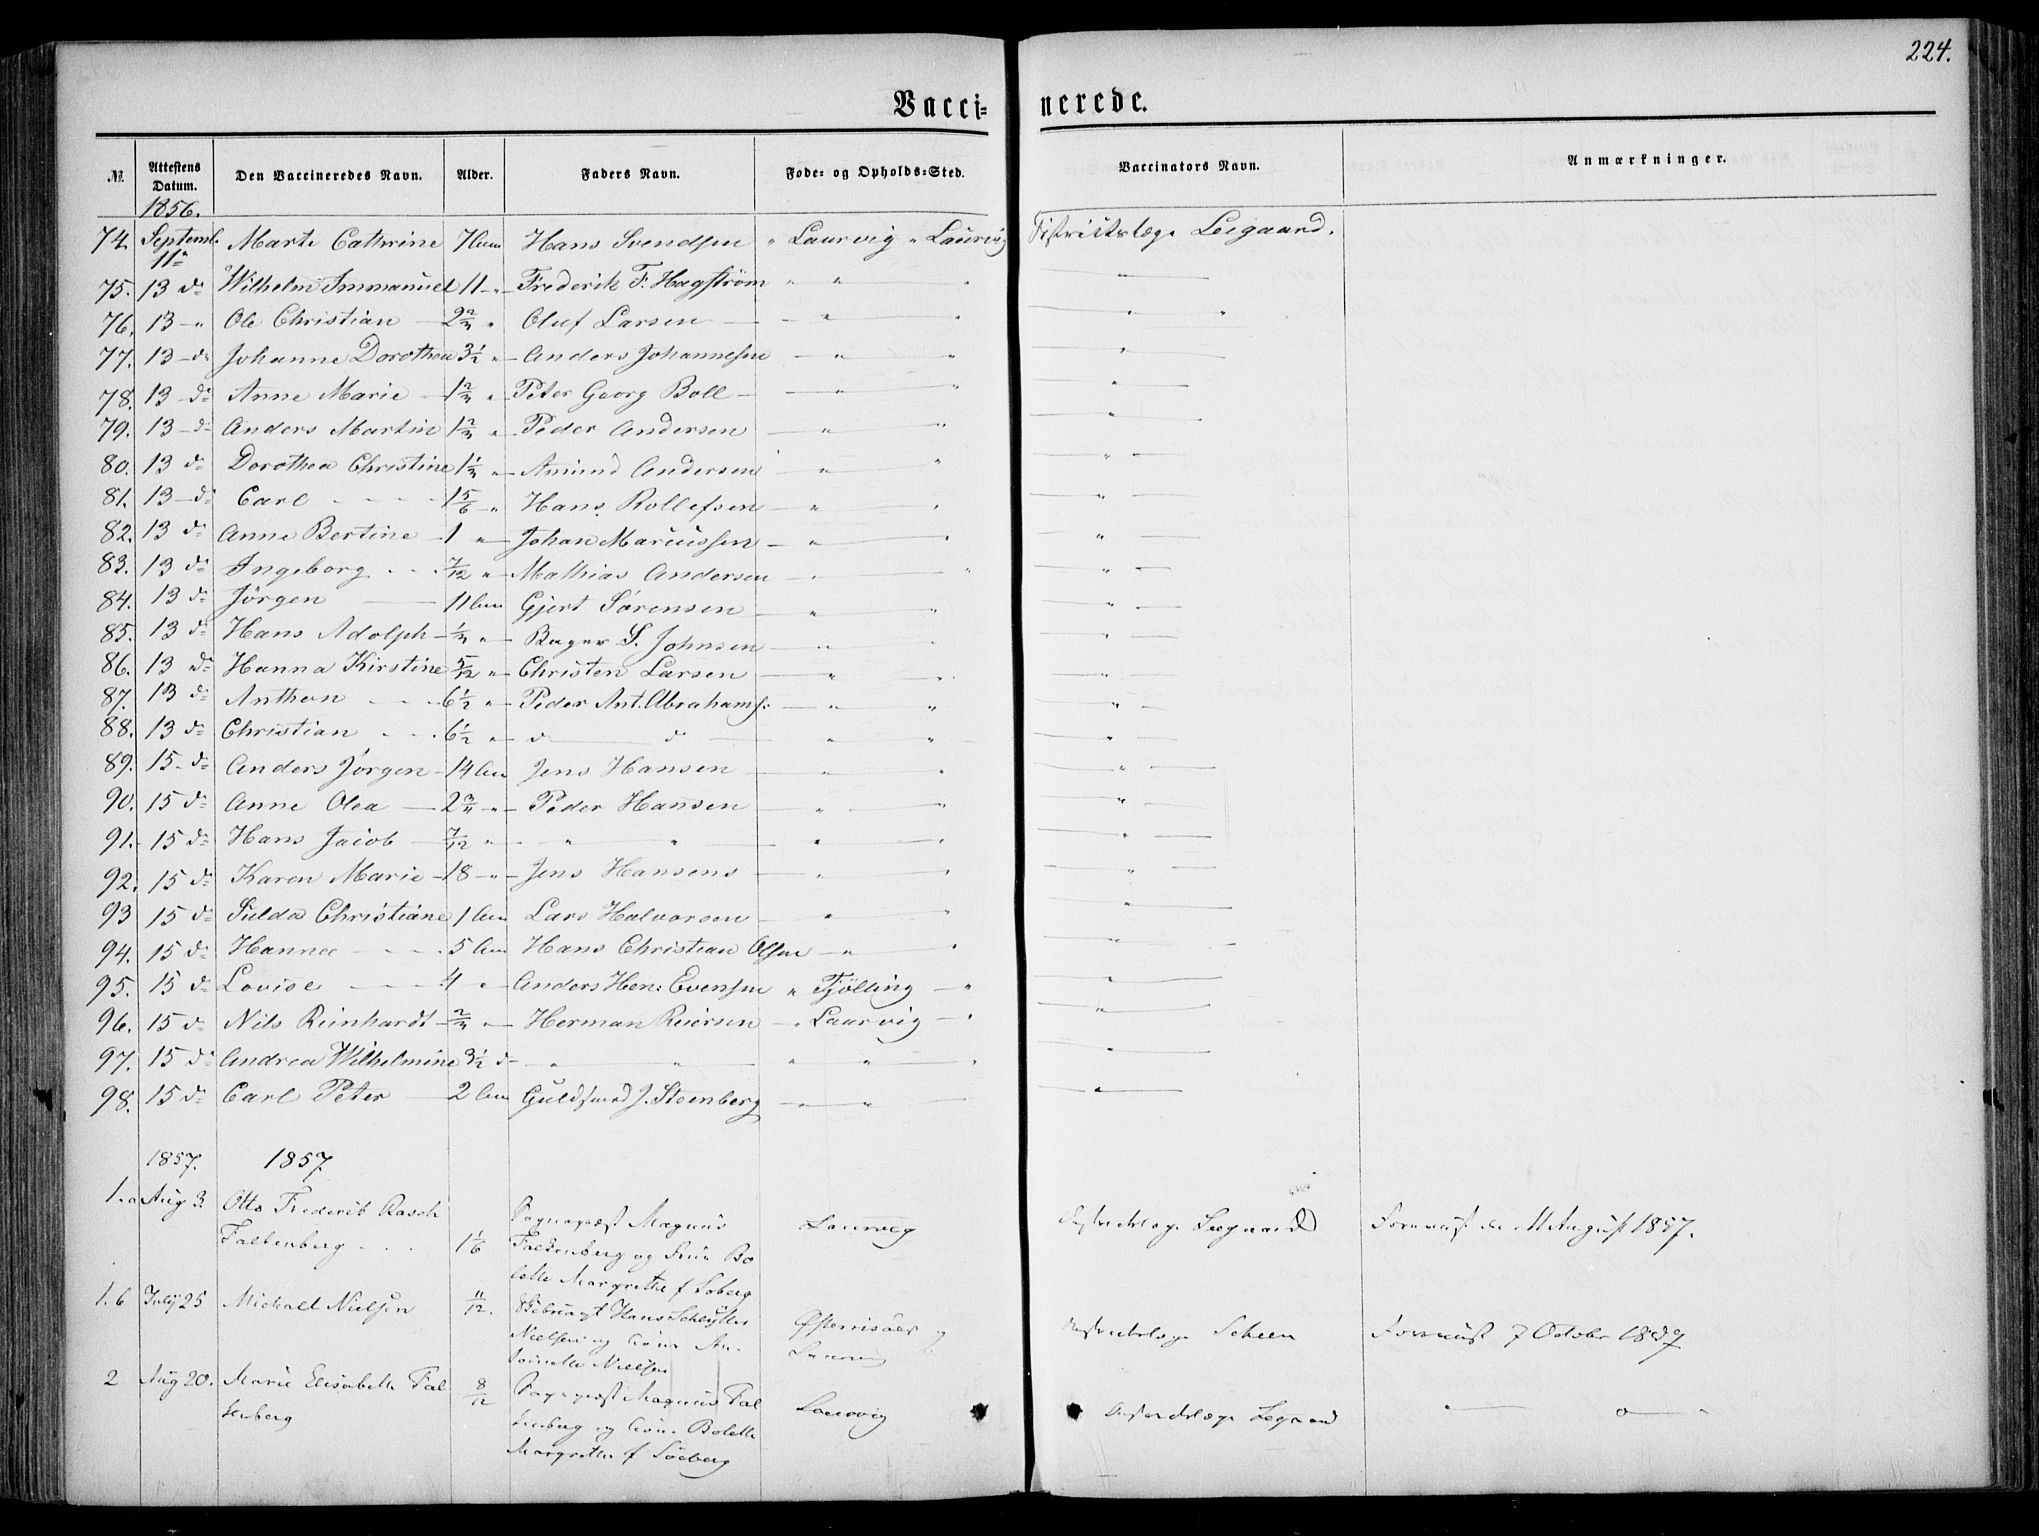 224.
Vacci- nerede.
№ Attestens Datum. Den Vaccineredes Navn. Alder. Faders Navn. Føde- og Opholds-Sted. Vaccinators Navn. Anmærkninger.
1856.
74. Septemb. 11te Marte Cathrine 7 Hans Svendsen " Laurvig " Laurvig Districtslæge Leegaard.
75. 13 do Wilhelm Immanuel 11 - " - Frederik F. Hagstrøm " " "
76. 13 - " Ole Christian - 2 2/3 " Oluf Larsen - " "
77. 13 - do Johanne Dorothea 3 1/2 " - Anders Johannesen - " " "
78. 13 - do Anne Marie - 1 2/3 " - Peter Georg Boll - " " "
79. 13 - do Anders Martin 1 2/3 " - Peder Andersen - " " "
80. 13 do Dorothea Christine 1 1/3 " - Amund Andersen " " "
81. 13 - do Carl - - - - 1 5/6 " - Hans Rollefsen - " " "
82. 13 do Anne Bertine - 1 " - Johan Marcussen - " " "
83. 13 do Ingeborg - - - 7/12 " - Mathias Andersen - " " "
84. 13 do Jörgen - 11 Gjert Sørensen - " " "
85. 13 do Hans Adolph - 1/3 " - Bager S. Johnsen - " " "
86. 13 do Hanna Kirstine 5/12 " - Christen Larsen - " " "
87. 13 do Anthon - - - 6 1/2 " - Peder Ant. Abrahams: - " " "
88. 13 do Christian - - - 6 1/2 " - do do - " " "
89. 15 - do Anders Jörgen - 14 Jens Hansen - " " "
90. 15 do Anne Olea - 2 " - Peder Hansen - " " "
91. - 15 do Hans Jacob - 7/12 " - " " - " " "
92. 15 do Karen Marie - 18 - " - Jens Hansens - " " "
93 15 do Christiane 1 Lars Halvorsen - " " "
94. 15 do Hanna - - - 5 Hans Christian Olsen - " " "
95. 15 do Lovise - - - 4 " - Anders Hen: Evensen " Tjölling - " "
96. 15 do Nils Reinhardt - 2/3 " - Herman Reiersen - " Laurvig - " "
97. 15 do Andrea Wilhelmine 3 1/2 do - " " " " " "
98. 15 do Carl Peter - 2 Guldsmed J. Steenberg - " " "
1857. 1857.
1. a Aug 3. Otto Frederik Rasch
Falkenberg - - - 1 1/6 Sogneprest Magnus
Falkenberg og Fru Bo
lette Margrethe f Soberg Laurvig Districtslæge Leegaard Forevist den 11 August 1857.
1. b July 25 Michael Nielsen 11/12. Hans Schlytter
Nielsen og Nielsen Østerrisøer og
Laurvig Districtslæge Scheen Forevist 7 October 1857
2 Aug 20. Marie Elisabeth Fal
kenberg 8/12 Sogneprest Magnus Fal
kenberg og Bolette
Margrethe f Söeberg Laurvig Districtslæge Legaard " o "